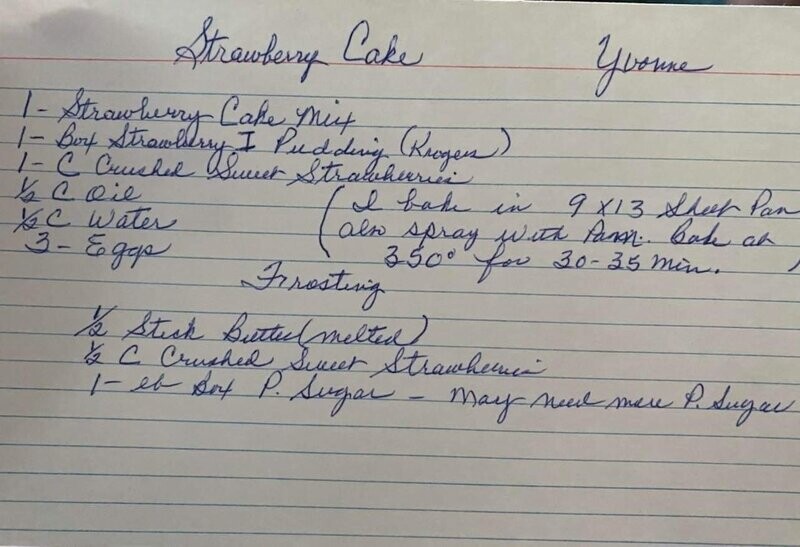 Strawberry Cake Yvonne
1 - Strawberry Cake Mix
1 - Box Strawberry I Pudding (Krogers)
1 - C Crushed Sweet Strawberries
1/2 C Oil
1/2 C Water
3 - Eggs
(I bake in 9 x 13 Sheet Pan
also spray with Pam. Bake at
350° for 30-35 min.)
Frosting
1/2 Stick Butter (melted)
1/2 C Crushed Sweet Strawberries
1 - lb Box P. Sugar - May need more P. Sugar